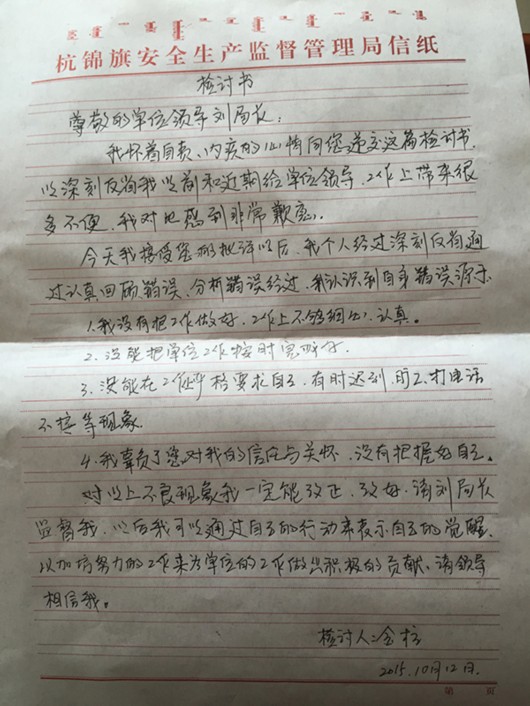 杭锦旗安全生产监督管理局信纸
检讨书
尊敬的单位领导刘局长：
我怀着自责、内疚的心情向您递交这篇检讨书，
以深刻反省我以前和近期给单位领导、工作上带来很
多不便，我对此感到非常歉意。
今天我接受您的批评以后，我个人经过深刻反省通
过认真回顾错误、分析错误经过，我认识到自身错误源于
1.我没有把工作做好，工作上不够细心、认真。
2.没能把单位工作按时完成好。
3.没能在工作严格要求自己，有时迟到，旷工、打电话
不接等现象。
4.我辜负了您对我的信任与关怀，没有把握好自己。
对以上不良现象我一定能改正，改好，请刘局长
监督我，以后我可以通过自己的行动来表示自己的觉醒，
以加倍努力的工作来为单位的工作做出积极的贡献，请领导
相信我。
检讨人：金柱
2015.10月12日.
第 页